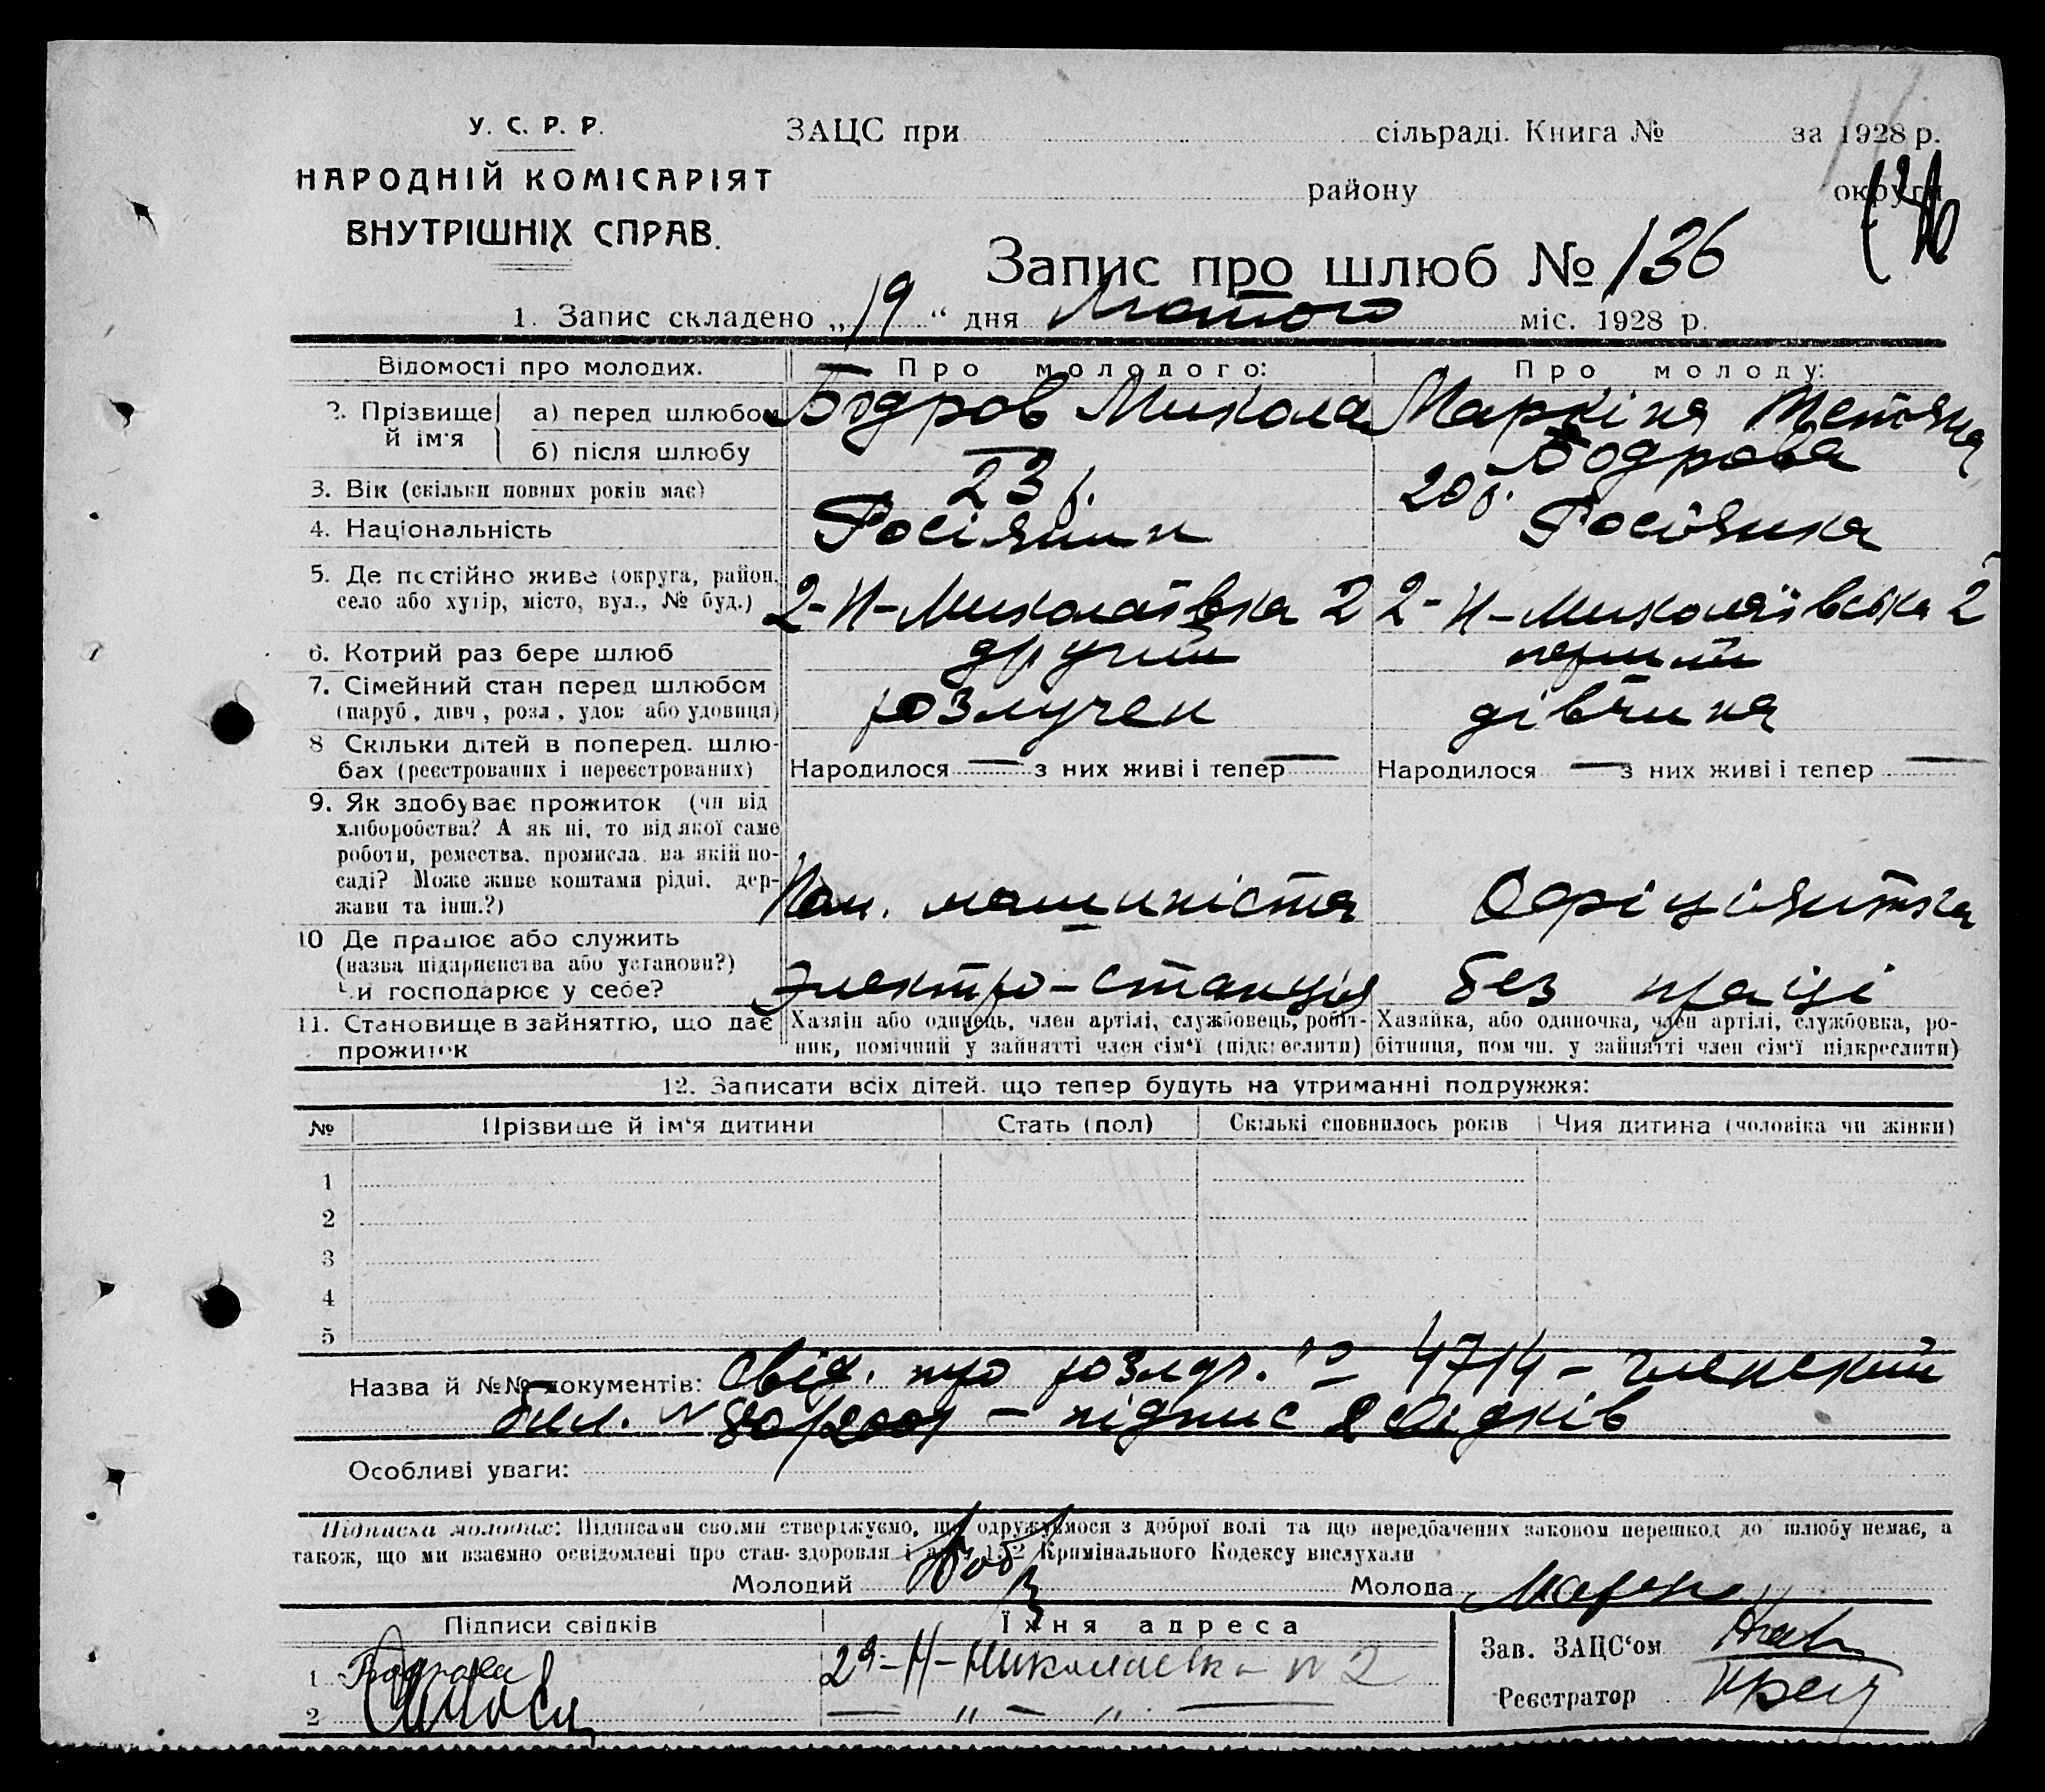 У. С. Р. Р.
НАРОДНІЙ КОМІСАРІЯТ
ВНУТРІШНІХ СПРАВ.
ЗАЦС при сільраді. Книга № за 1928 р.
району округи
Запис про шлюб № 136
1. Запис складено „19“ дня Лютого міс. 1928 р.
Відомості про молодих. Про молодого: Про молоду:
2. Прізвище й ім'я
а) перед шлюбом Бодров Микола Маркіна Тетяна
б) після шлюбу — Бодрова
3. Вік (скільки повних років має) 23 р. 20 р.
4. Національність Росіянин Росіянка
5. Де постійно живе (округа, район, село або хутір, місто, вул., № буд.) 2-Н-Миколаївка 2 2-Н-Миколаївська 2
6. Котрий раз бере шлюб другий перший
7. Сімейний стан перед шлюбом (паруб, дівч, розл, удов або удовиця) розлучен дівчина
8 Скільки дітей в поперед. шлюбах (реєстрованих і нереєстрованих) Народилося — з них живі і тепер — Народилося — з них живі і тепер —
9. Як здобуває прожиток (чи від хліборобства? А як ні, то від якої саме роботи, ремества, промисла, на якій посаді? Може живе коштами рідні, держави та інш.?) Пом. машиніста Офіціянтка
10 Де працює або служить (назва підприємства або установи?) Чи господарює у себе? Электро-станція без праці
11. Становище в зайняттю, що дає прожиток
Хазяін або одинець, член артілі, службовець, робітник, помічний у зайнятті член сім'ї (підкреслити)
Хазяйка, або одиночка, член артілі, службовка, робітниця, пом чн. у зайнятті член сім'ї підкреслити)
12. Записати всіх дітей, що тепер будуть на утриманні подружжя:
№ Прізвище й ім'я дитини Стать (пол) Скількі сповнилось років Чия дитина (чоловіка чи жінки)
1
2
3
4
5
Назва й №№ документів: Свід. про розлуч. № 4714 - членский
бил. № 80/2001 - підпис 2 свідків
Особливі уваги:
Підписка молодих: Підписами своїми стверджуємо, що одружуємося з доброї волі та що передбачених законом перешкод до шлюбу немає, а
також, що ми взаємно освідомлені про стан здоровля і арт. 152 Кримінального Кодексу вислухали
Молодий Молода Марки
Підписи свідків Їхня адреса
1 Бодрова 2я-Н-Николаевка № 2
2 — „ — „ —
Зав. ЗАЦС'ом
Реєстратор